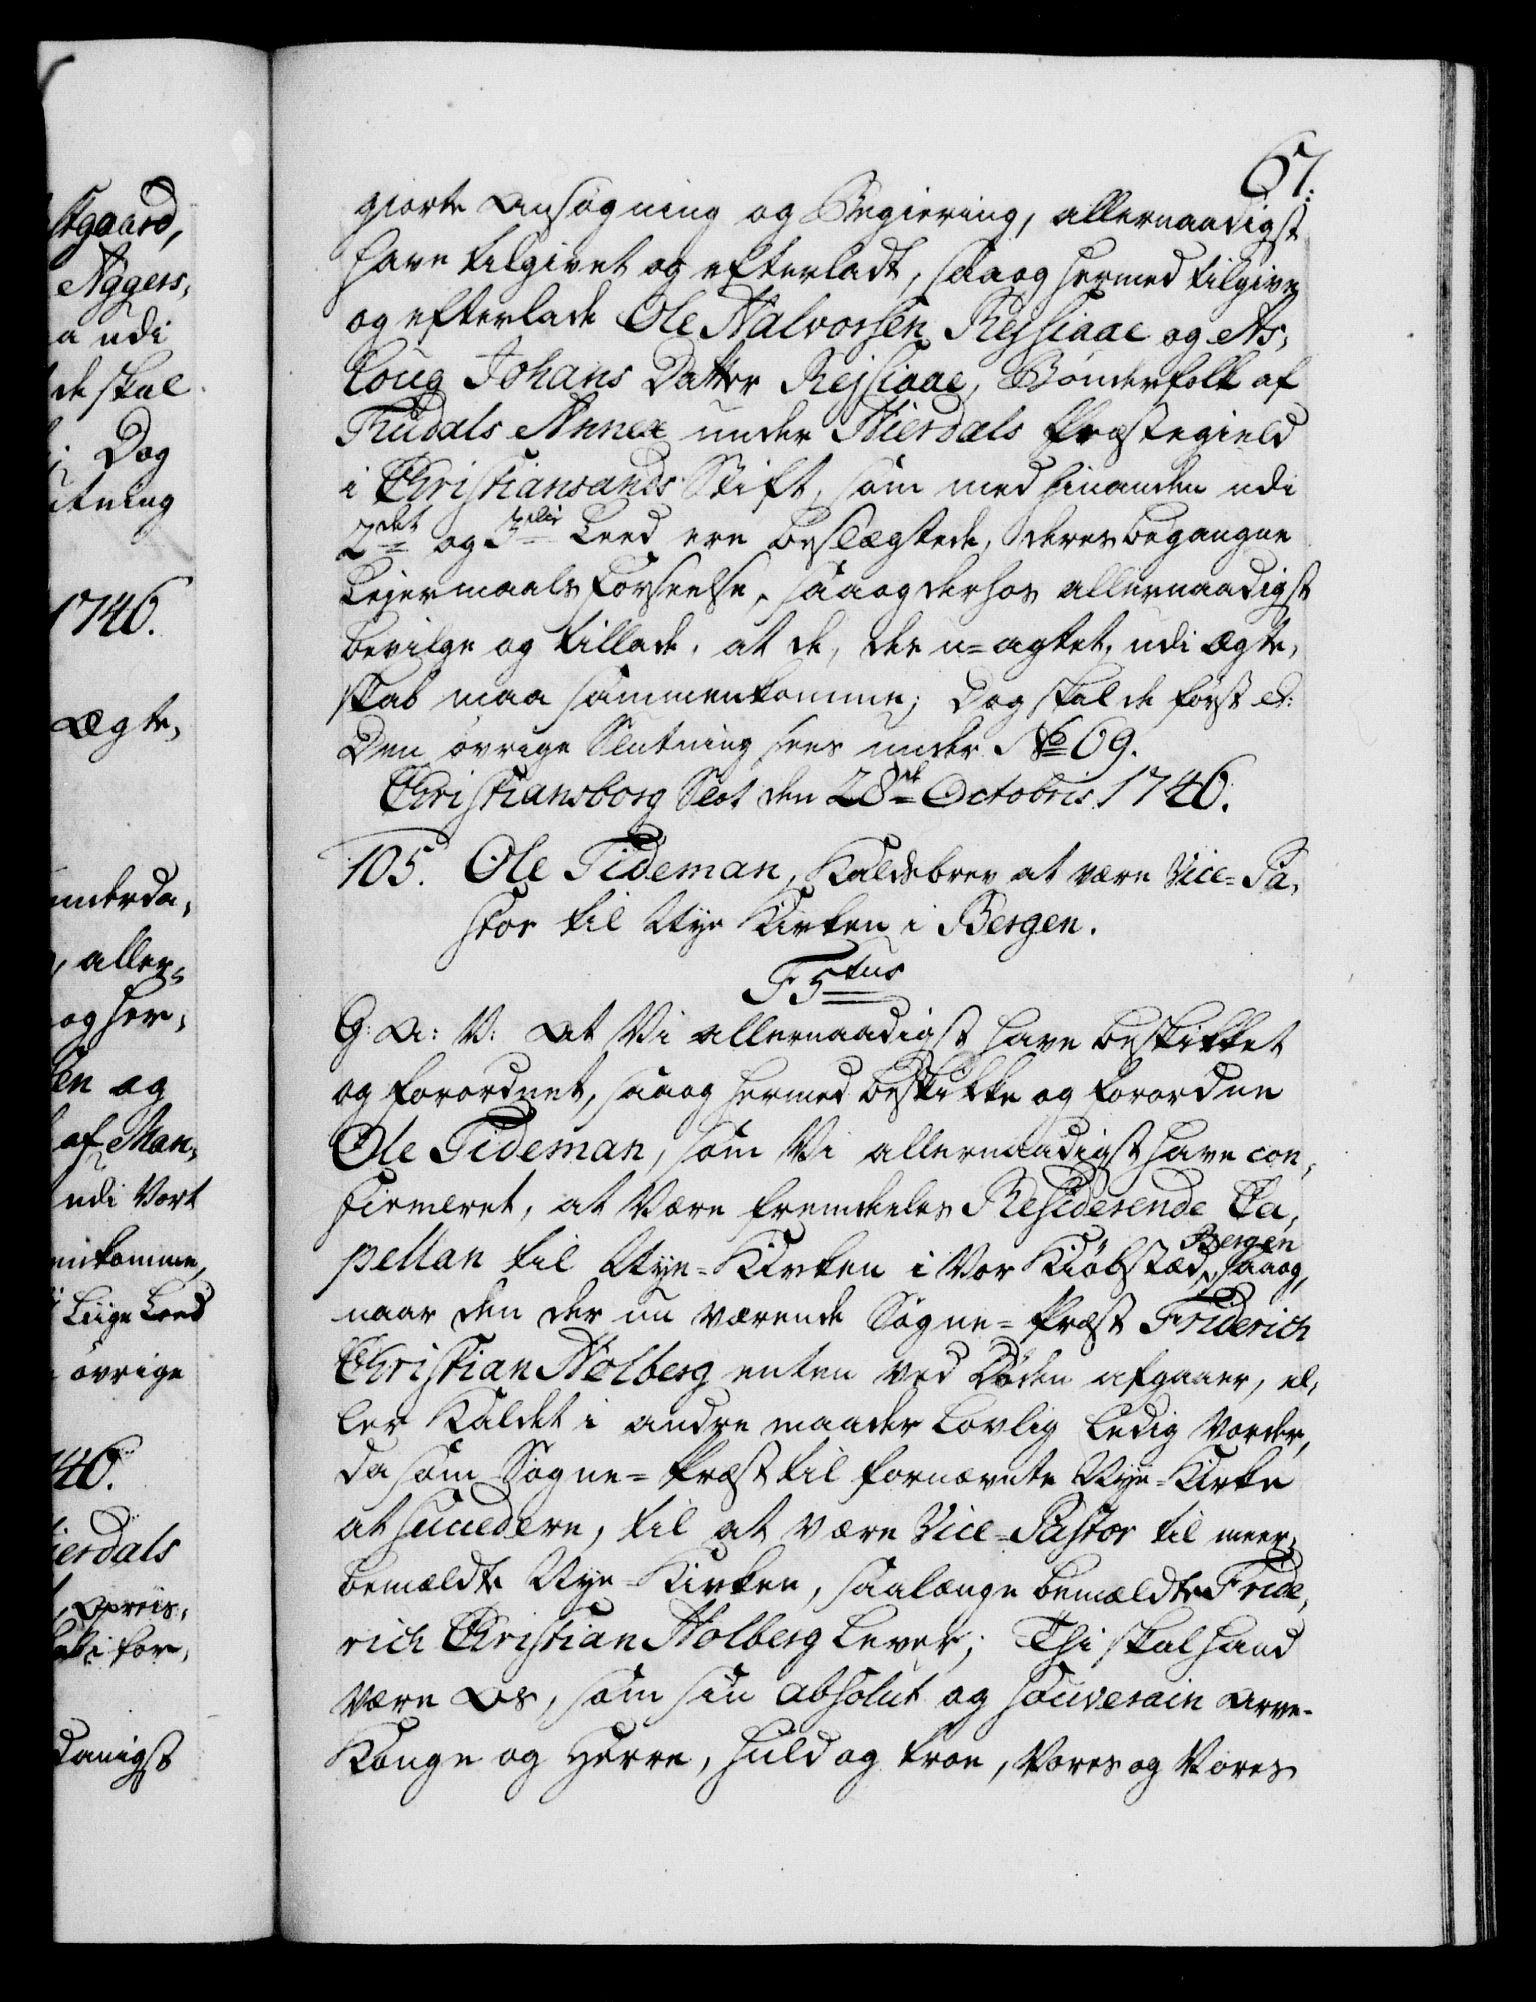 67.
giorte Ansøgning og Begiering, allernaadigst
have tilgivet og efterladt, saa og hermed tilgive
og efterlade Ole Halvorsen Rejsiaae og As,
loug Johans Datter Rejsiaae, Bønderfolk af
Tudals Annex under Hierdals Præstegield
i Christiansands Stift, som med hinanden udi
2det og 3die Leed ere beslægtede, deres begangne
Lejermaals Forseelse, saa og derhos allernaadigst
bevilge og tillade, at de, des u=agtet, udi Ægte,
skab maa sammenkomme; Dog skal de først &:
Den øvrige Slutning sees under No 69.
Christiansborg Slot den 28de Octobris 1746.
105. Ole Tideman, Kaldsbrev at være Vice=Pa,
stor til Nye Kirken i Bergen.
F 5tus
G: A: V: At Vi allernaadigst have beskikket
og forordnet, saa og hermed beskikke og forordne
Ole Tideman, som Vi allernaadigst have con,
firmeret, at være fremdeeles Residerende Ca,
pellan til Nye=Kirken i Vor Kiøbstæd Bergen, saa og,
naar den der nu værende Sogne=Præst Friderich
Christian Holberg enten ved Døden afgaaer, el,
ler Kaldet i andre maader lovlig ledig vorder,
da som Sogne=Præst til fornævnte Nye=Kirke
at succedere, til at være Vice=Pastor til meer,
bemældte Nye=Kirken, saalænge bemældte Fride,
rich Christian Holberg lever; Thi skal hand
være Os, som sin absolut og souverain Arve-
Konge og Herre, huld og troe, Vores og Vores
Stgaard,
Aggers,
a udi
de skal
Dog
utning
1746.
Ægte,
underda,
, aller,
og her,
sen og
af Man,
udi Vort
enkomme,
Liige Leed
øvrige
46.
ierdals
Opreis,
i for,
danigst